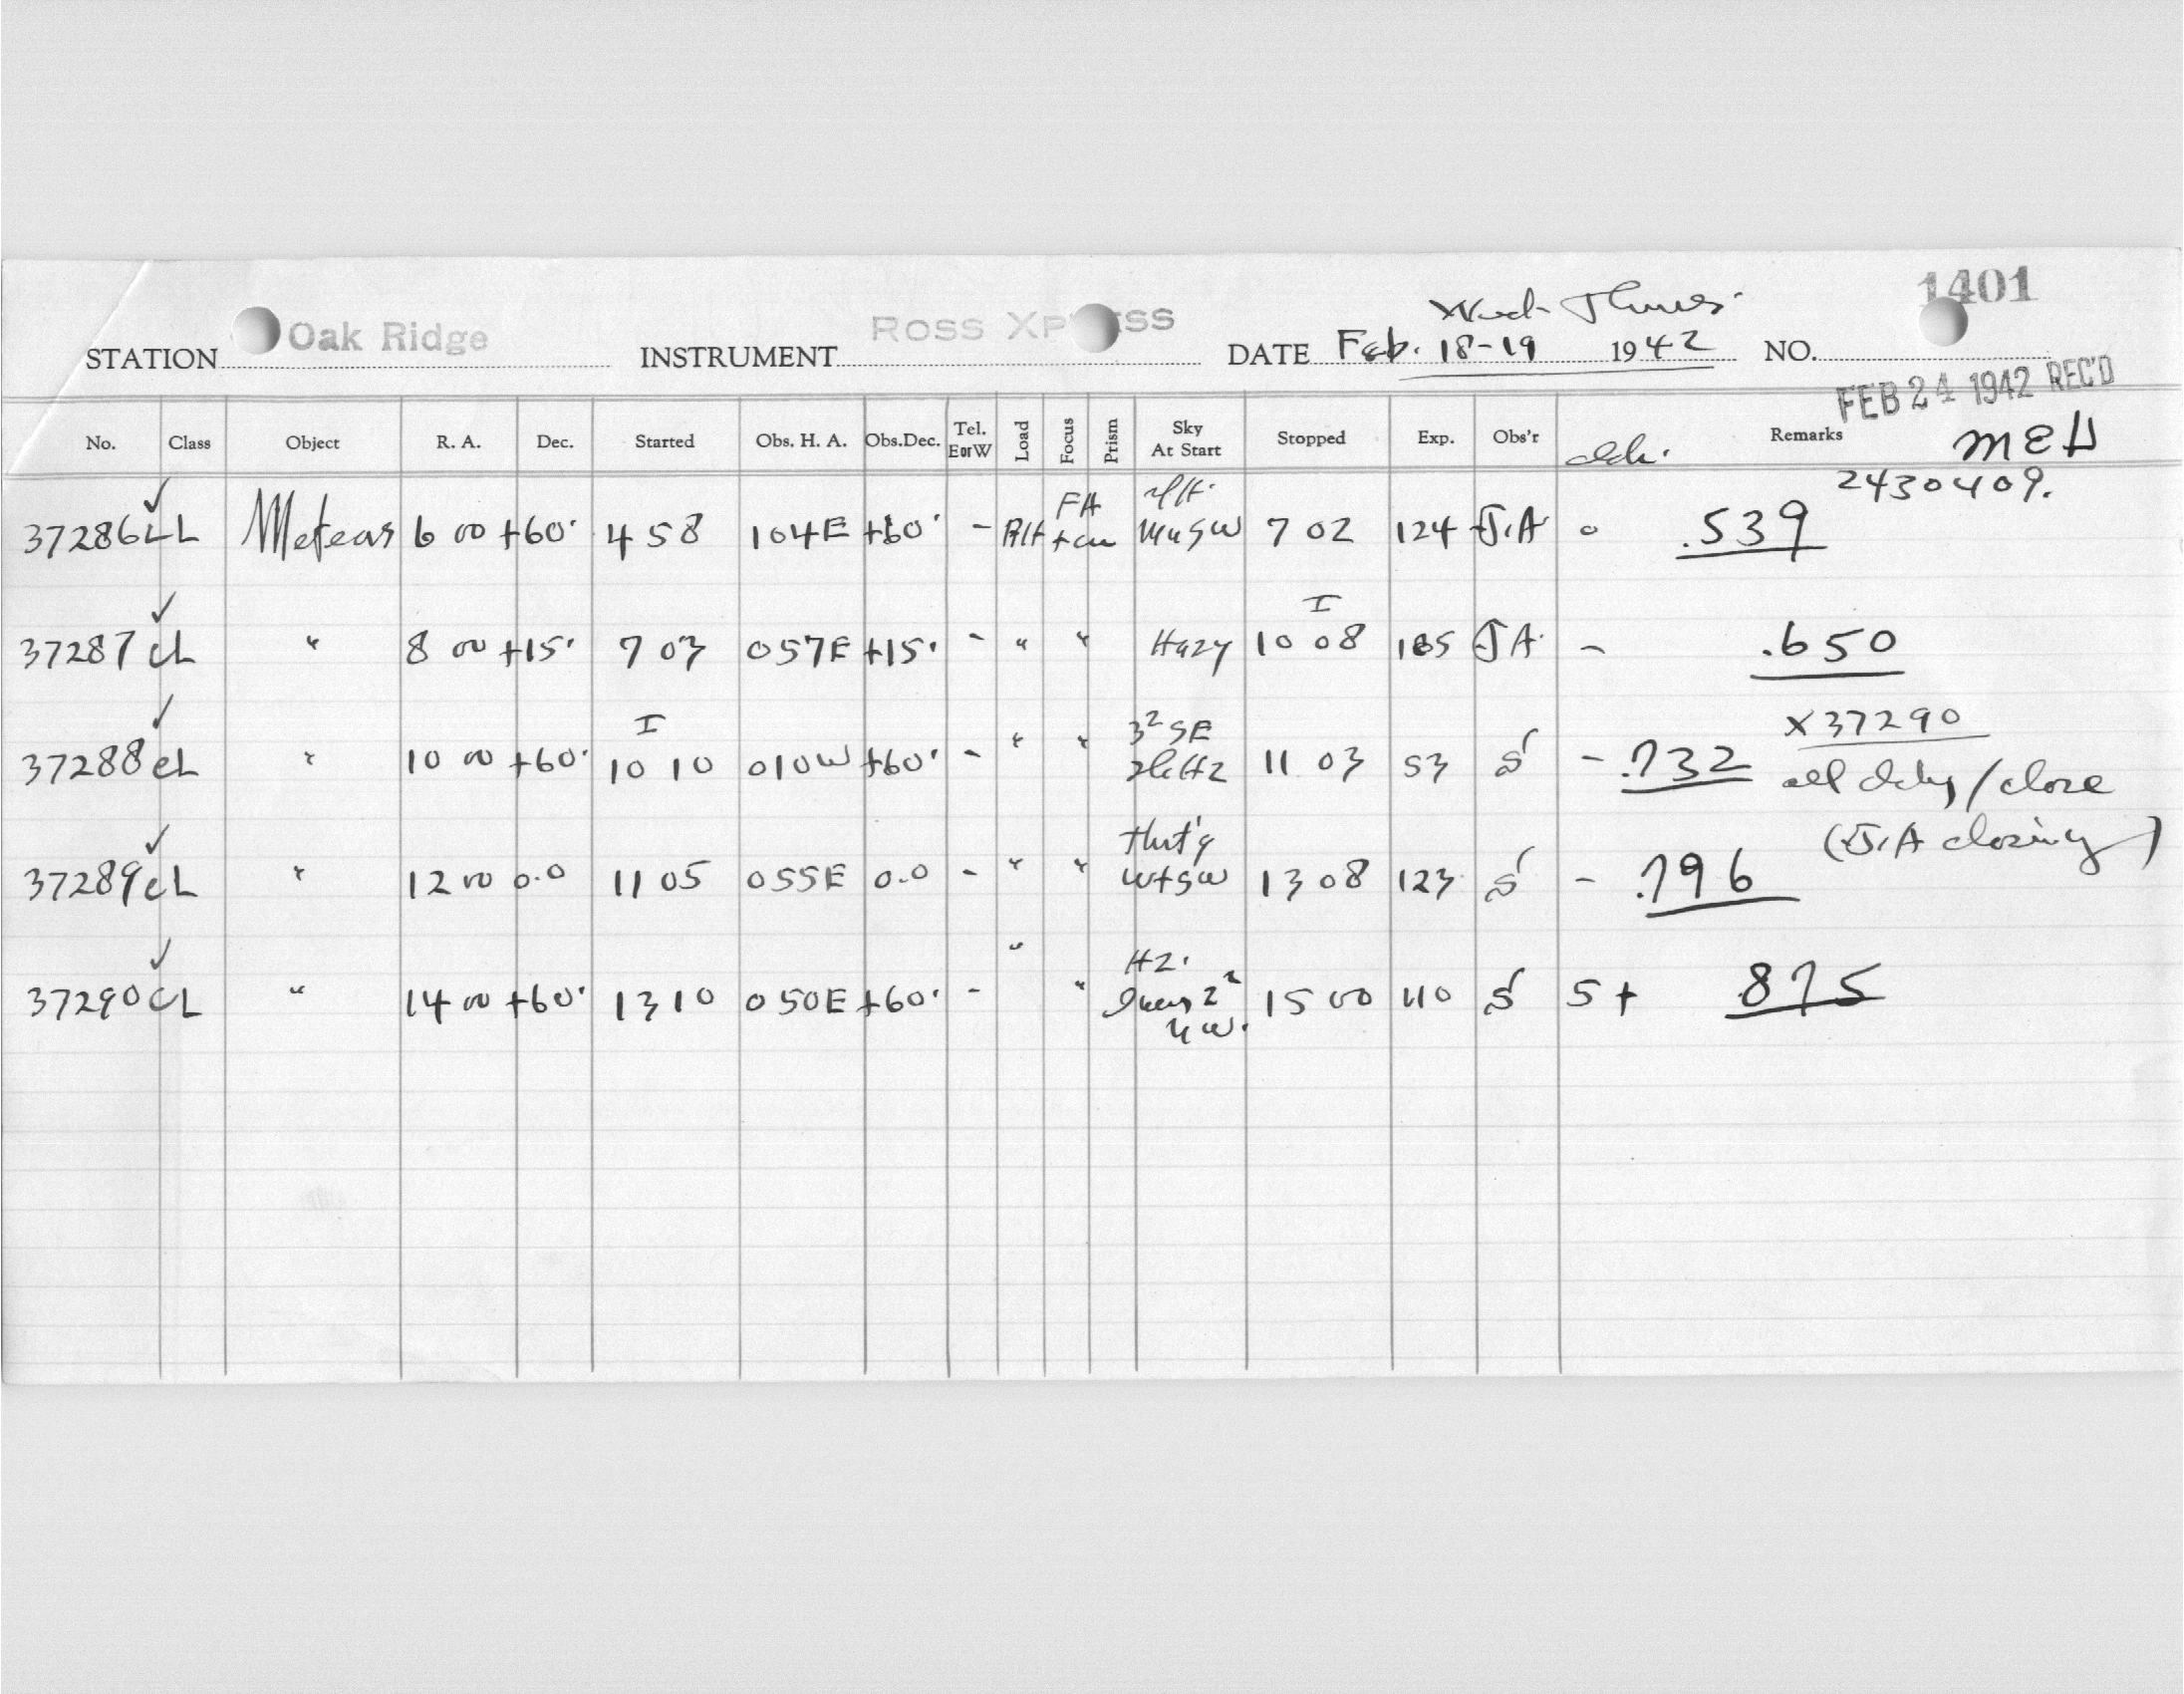 1401
Wed- Thurs.
STATION Oak Ridge INSTRUMENT ROSS XP SS DATE Feb. 18-19 1942 NO.
FEB 24 1942 REC'D
No. Class Object R. A. Dec. Started Obs. H. A. Obs.Dec. Tel. E or W Load Focus Prism Sky At Start Stopped Exp. Obs'r Remarks
MEH
2430409.
37286 LL Meteors 6 00 +60° 4 58 104E +60° - FA 7 02 124 J.A. .539
37287 cL " 8 00 +15° 7 03 057E +15° - " " Hazy 10 08 I 185 JA. - .650
37288 cL " 10 00 +60° I 10 10 010W +60° - " " 3² SE 11 03 53 S - .732 X37290
/close
37289 cL " 12 00 0.0 11 05 055E 0.0 - " " W+SW 13 08 123 S - .796 (J.A closing)
37290 CL " 14 00 +60° 13 10 050E +60° - " " HZ. 15 00 110 S 5+ .875